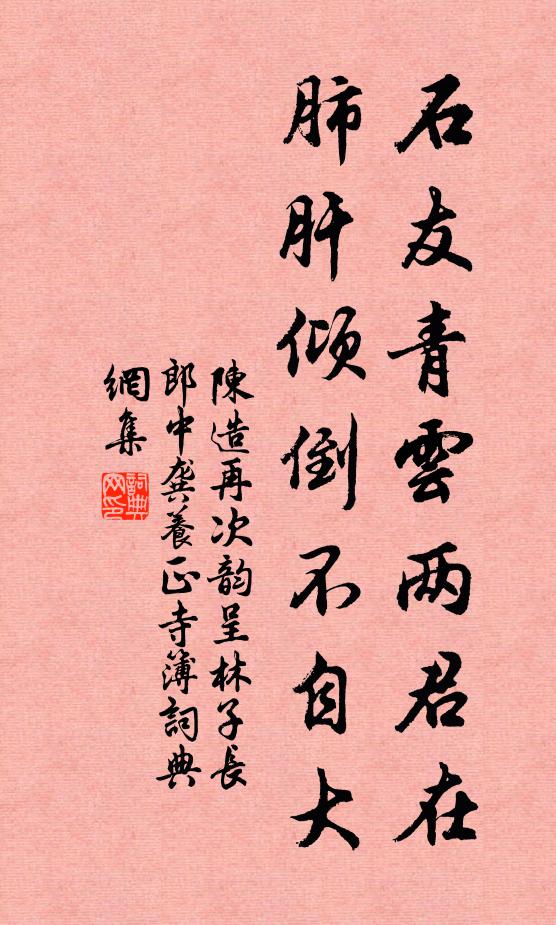 石友青雲两君在
肺肝傾倒不自大
陳造再次韵呈林子長
郎中龚養正寺簿詞典
網集
詞典网印